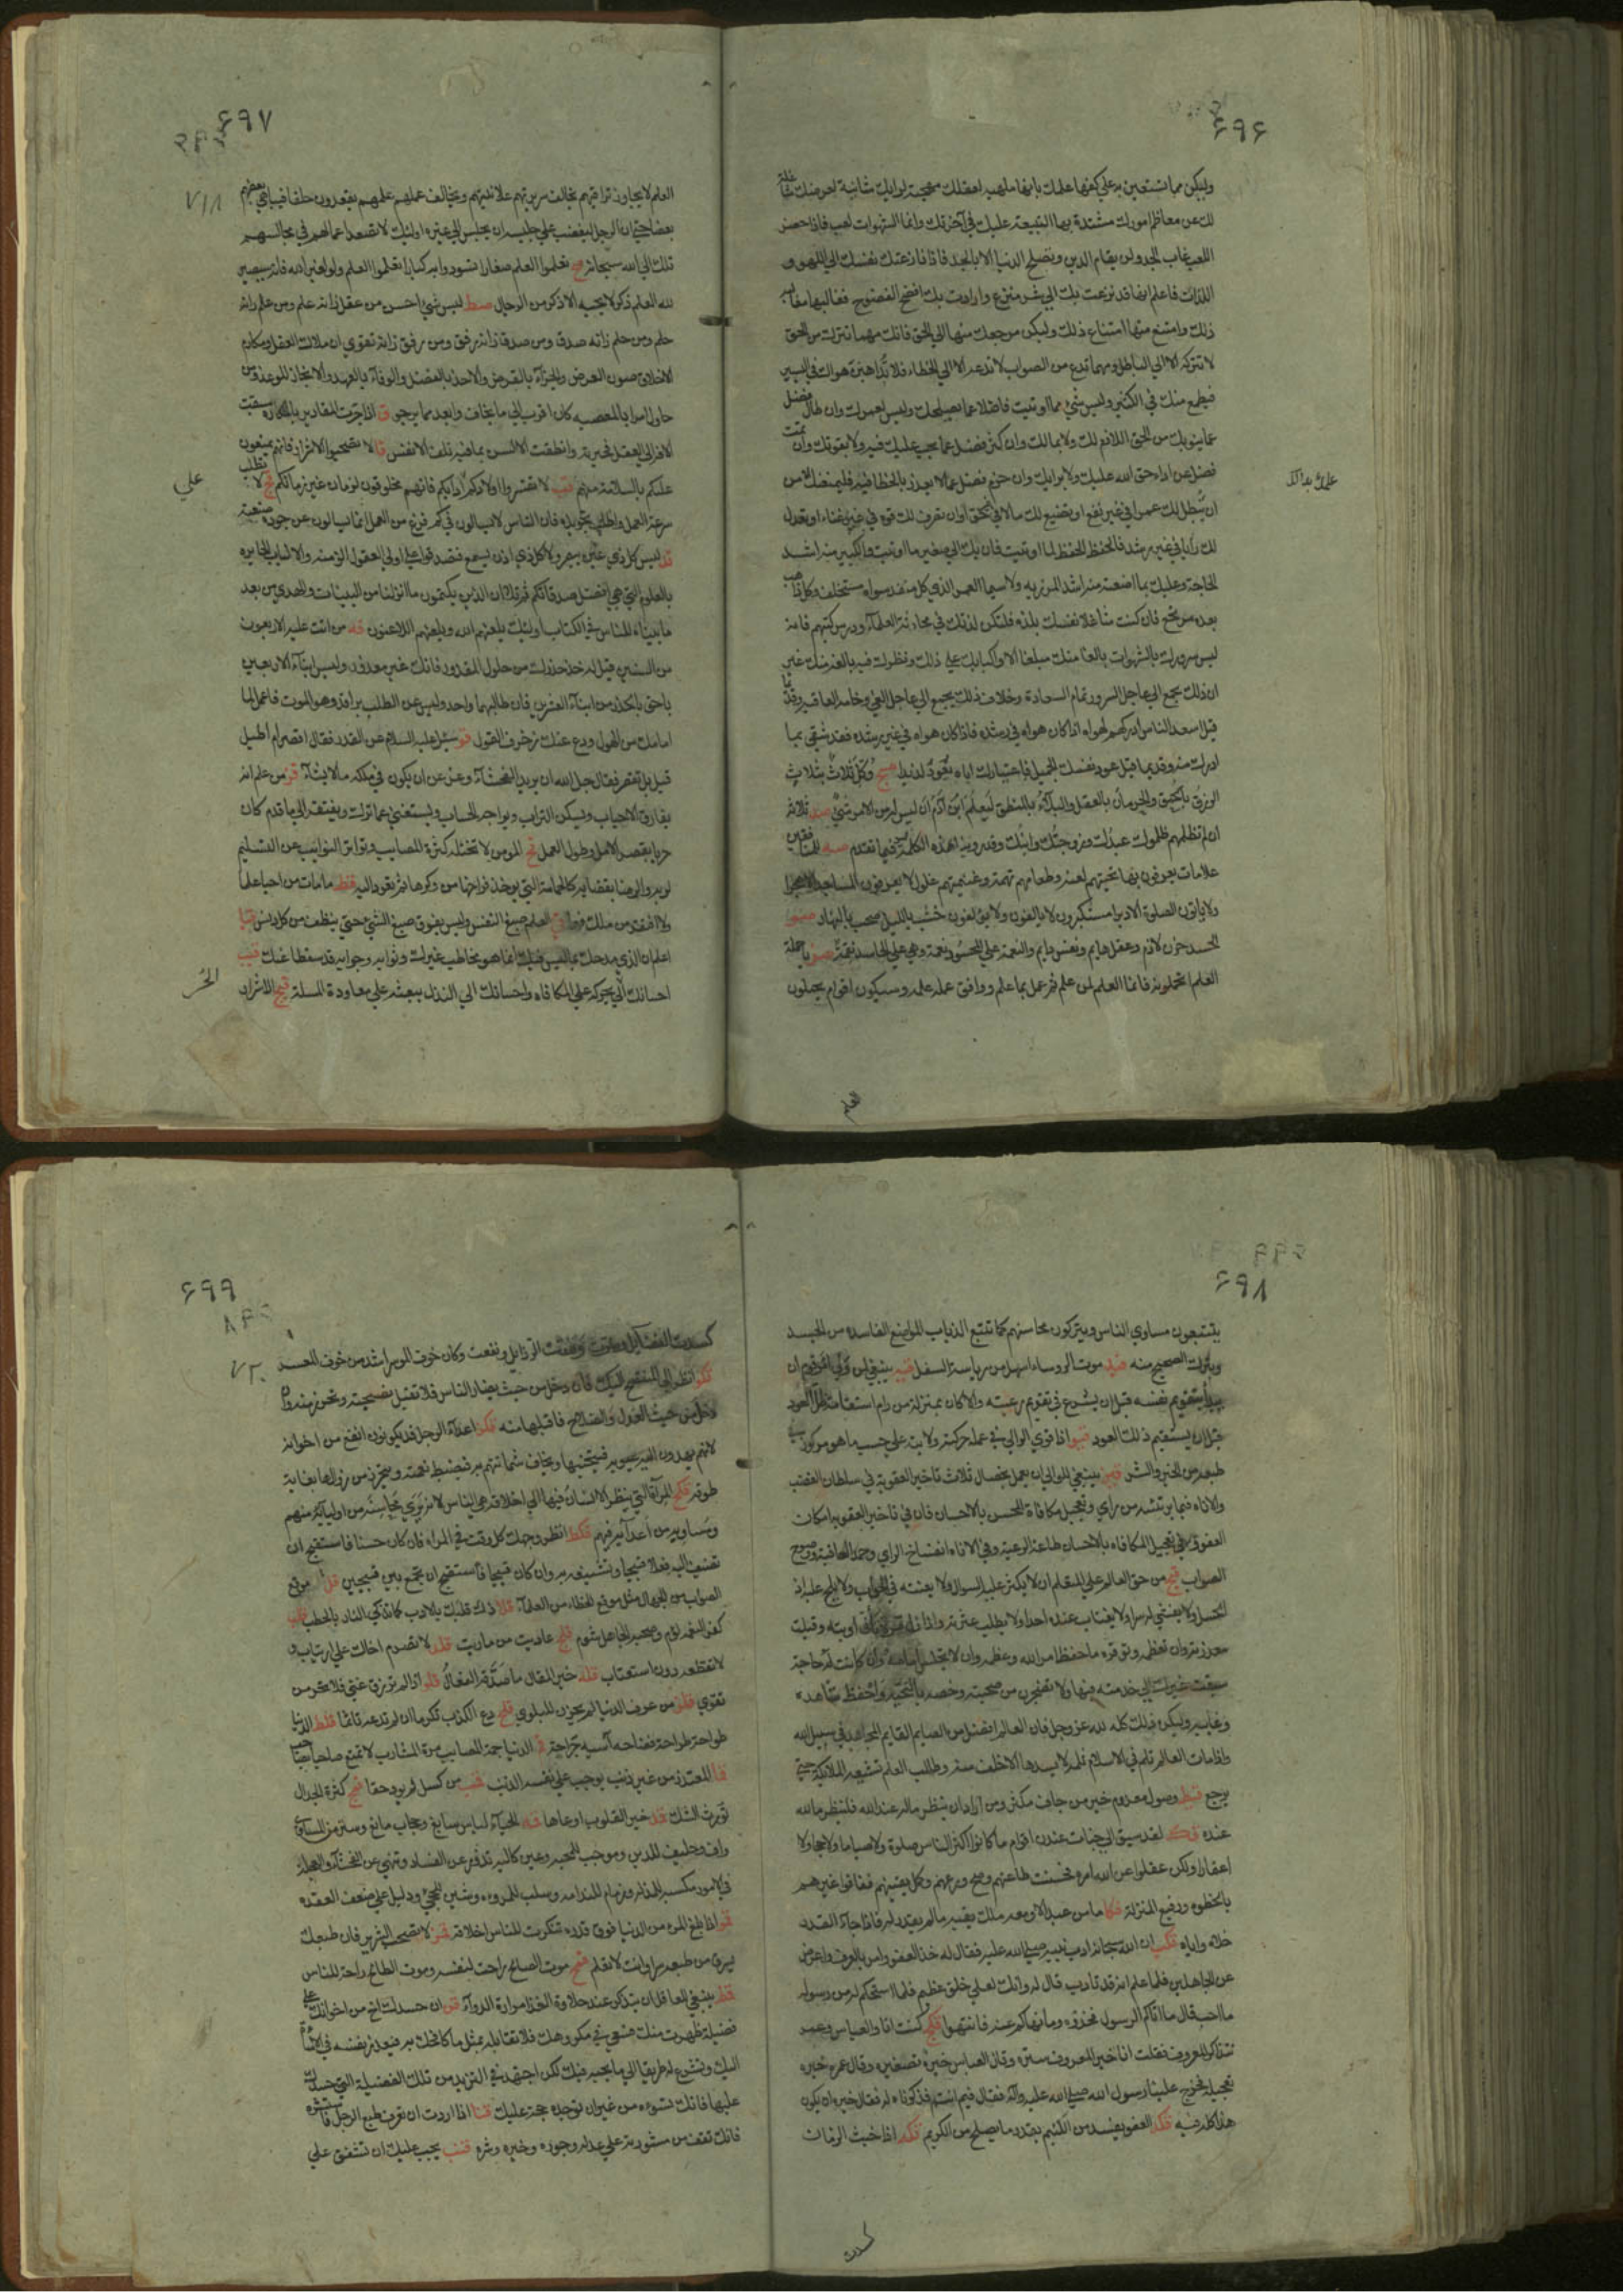 ۶۹۶
وليكن مما تستعين به على كفها علمك بانها ملهية لعقلك مهجنة لرايك شائنة لعرضك شاغلة
لك عن معاظم امورك مشتدة بها التبعة عليك في آخرتك وانما الشهوات لعب فاذا حضر
اللعب غاب الجد ولن يقام الدين وتصلح الدنيا الا بالجد فاذا نازعتك نفسك الى اللهو و
اللذات فاعلم انها قد نزعت بك الى شر منزع وارادت بك افضح الفضوح فغالبها مغالبة
ذلك وامتنع منها امتناع ذلك وليكن مرجعك منها الى الحق فانك مهما تترك من الحق
لا تتركه الا الى الباطل ومهما تدع من الصواب لا تدعه الا الى الخطاء فلا تداهنن هواك في اليسير
فيطمع منك في الكثير وليس شيء مما اوتيت فاضلا عما يصلحك وليس لعمرك وان طال فضل
عما ينوبك من الحق اللازم لك ولا بمالك وان كثر فضل عما يجب عليك فيه ولا بقوتك وان تمت
فضل عن اداء حق الله عليك ولا برايك وان حزم فضل عما لا تعذر بالخطا فيه فليمنعنك من
ان تبطل لك عمرا في غير نفع او تضيع لك مالا في غير حق او ان تصرف لك قوة في غير غناء او تعدل
لك رأيا في غير رشد فالحفظ الحفظ لما اوتيت فان بك الى صغير ما اوتيت والكبير منه اشد
الحاجة وعليك بما اضعته منه اشد المرزية ولا سيما العمر الذي كل منفد سواه مستخلف وكل ذاهب
بعده مرتجع فان كنت شاغلا نفسك بلذة فلتكن لذتك في محادثة العلماء ودرس كتبهم فانه
ليس سرورك بالشهوات بالغا منك مبلغا الا واكبابك على ذلك ونظرك فيه بالغه منك غير
ان ذلك يجمع الى عاجل السرور تمام السعادة وخلاف ذلك يجمع الى عاجل الغي وخامة العاقبة وقديما
قيل اسعد الناس ادركهم لهواه اذا كان هواه في رشده فاذا كان هواه في غير رشده فقد شقى بما
ادرك منه وقديما قيل عود نفسك الجميل فباعتيادك اياه يعود لذيذا وكل ثلاث بثلاث
الرزق بالحمق والحرمان بالعقل والبلاء بالمنطق ليعلم ابن آدم ان ليس له من الامر شيء ثلاثة
ان لم تظلمهم ظلموك عبدك وزوجتك وابنك وقد روينا هذه الكلمة فيما تقدم للمنافقين
علامات يعرفون بها تحيتهم لعنة وطعامهم تهمة وغنيمتهم غلول لا يعرفون المساجد الا هجرا
ولا ياتون الصلوة الا دبرا مستكبرون لا يالفون ولا يؤلفون خشب بالليل صخب بالنهار
الحسد حزن لازم وعقل هايم ونفس دايم والنعمة على المحسود نعمة وهي على الحاسد نقمة يا حملة
العلم اتحملونه فانما العلم لمن علم ثم عمل بما علم ووافق عمله علمه وسيكون اقوام يحملون
العلم
۶۹۷
العلم لا يجاوز تراقيهم تخالف سريرتهم علانيتهم ويخالف عملهم علمهم يقعدون حلقا فيباهي بعضهم
بعضا حتى ان الرجل ليغضب على جليسه ان يجلس الى غيره اولئك لا تصعد اعمالهم في مجالسهم
تلك الى الله سبحانه تعلموا العلم صغارا تسودوا به كبارا تعلموا العلم ولو لغير الله فانه سيصير
لله العلم ذكر لا يحبه الا ذكور من الرجال ليس شيء احسن من عقل زانه علم ومن علم زانه
حلم ومن حلم زانه صدق ومن صدق زانه رفق ومن رفق زانه تقوى ان ملاك العقل ومكارم
الاخلاق صون العرض والجزاء بالقرض والاخذ بالفضل والوفاء بالعهد والانجاز للوعد ومن
حاول امرا بالمعصية كان اقرب الى ما يخاف وابعد مما يرجو اذا جرت المقادير بالمكاره سبقت
الآفة الى العقل فحيرته وانطقت الالسن بما فيه تلف الانفس لا تصحبوا الاشرار فانهم يمنون
عليكم بالسلامة منهم لا تقسروا اولادكم على آدابكم فانهم مخلوقون لزمان غير زمانكم لا تطلب
سرعة العمل واطلب تجويده فان الناس لا يسالون في كم فرغ من العمل انما يسالون عن جودة صنعته
ليس كل ذي عين يبصر ولا كل ذي اذن يسمع فتصدقوا على اولي العقول الزمنة والالباب الحايرة
بالعلوم التي هي افضل صدقاتكم ثم تلا ان الذين يكتمون ما انزلنا من البينات والهدى من بعد
ما بيناه للناس في الكتاب اولئك يلعنهم الله ويلعنهم اللاعنون من اتت عليه الاربعون
من السنين قيل له خذ حذرك من حلول المقدور فانك غير معذور وليس ابناء الاربعين
باحق بالحذر من ابناء العشرين فان طالبهما واحد وليس عن الطلب براقد وهو الموت فاعمل لما
امامك من الهول ودع عنك زخرف القول سئل عليه السلام عن القدر فقال اقصر ام اطيل
قيل بل تقصر فقال جل الله ان يريد الفحشاء وعز عن ان يكون في ملكه ما لا يشاء من علم انه
يفارق الاحباب ويسكن التراب ويواجه الحساب ويستغني عما ترك ويفتقر الى ما قدم كان
حريا بقصر الامل وطول العمل المؤمن لا تختله كثرة المصايب وتواتر النوايب عن التسليم
لربه والرضا بقضائه كالحمامة التي يوخذ فراخها من وكرها ثم تعود اليه ما مات من احيا علما
ولا افتقر من ملك فهما العلم صبغ النفس وليس يفوق صبغ الشيء حتى ينظف من كل دنس
اعلم ان الذي مدحك بما ليس فيك انما هو مخاطب غيرك وثوابه وجوابه قد سقطا عنك
احسانك الى الحر يحركه على المكافاة واحسانك الى النذل يبعثه على معاودة المسئلة الاشرار
على
الحر
۶۹۸
يتتبعون مساوي الناس ويتركون محاسنهم كما تتبع الذباب المواضع الفاسدة من الجسد
ويترك الصحيح منه موت الروساء اسهل من رياسة السفل ينبغي لمن ولي امر قوم ان
يبدأ بتقويم نفسه قبل ان يشرع في تقويم رعيته والا كان بمنزلة من رام استقامة ظل العود
قبل ان يستقيم ذلك العود اذا قوي الوالي في عمله حركته ولايته على حسب ما هو مركوز في
طبعه من الخير والشر ينبغي للوالي ان يعمل بخصال ثلاث تاخير العقوبة في سلطان الغضب
والاناة فيما يرتئيه من راي وتعجيل مكافاة المحسن بالاحسان فان في تاخير العقوبة امكان
العفو وفي تعجيل المكافاة بالاحسان طاعة الرعية وفي الاناة انفساخ الراي وحمد العاقبة ووضوح
الصواب من حق العالم على المتعلم ان لا يكثر عليه السوال ولا يعنته في الجواب ولا يلح عليه اذا
كسل ولا يفشي له سرا ولا يغتاب عنده احدا ولا يطلب عثرته واذا زل تانيت اوبته وقبلت
معذرته وان تعظمه وتوقره ما حفظ امر الله وعظمه وان لا تجلس امامه وان كانت له حاجة
سبقت غيرك الى خدمته فيها ولا تضجرن من صحبته وخصه بالتحية واحفظ شاهده
وغايبه وليكن ذلك كله لله عز وجل فان العالم افضل من الصايم القايم المجاهد في سبيل الله
واذا مات العالم ثلم في الاسلام ثلمة لا يسدها الا خلف منه وطالب العلم تشيعه الملائكة حتى
يرجع وصول معدوم خير من جاف مكثر ومن اراد ان ينظر ماله عند الله فلينظر ما لله
عنده لقد سبق الى جنات عدن اقوام ما كانوا اكثر الناس صلوة ولا صياما ولا حجا ولا
اعتمارا ولكن عقلوا عن الله امره فحسنت طاعتهم وصح ورعهم وكمل يقينهم ففاقوا غيرهم
بالحظوة ورفيع المنزلة ما من عبد الا ومعه ملك يقيه ما لم يقدر له فاذا جاء القدر
خلاه واياه ان الله سبحانه ادب نبيه صلى الله عليه فقال له خذ العفو وامر بالعرف واعرض
عن الجاهلين فلما علم انه قد تادب قال له وانك لعلى خلق عظيم فلما استحكم له من رسوله
ما احب قال ما آتاكم الرسول فخذوه وما نهاكم عنه فانتهوا كنت انا والعباس وعمر
نتذاكر المعروف فقلت انا خير المعروف ستره وقال العباس خيره تصغيره وقال عمر خيره
تعجيله فخرج علينا رسول الله صلى الله عليه وآله فقال فيم انتم فذكرنا له فقال خيره ان يكون
هذا كله فيه العفو يفسد من اللئيم بقدر ما يصلح من الكريم اذا خبث الزمان
كسدت
۶۹۹
كسدت الفضايل وضرت ونفقت الرذايل ونفعت وكان خوف الموسر اشد من خوف المعسر
انظر الى المتنصح اليك فان دخل من حيث يضار الناس فلا تقبل نصيحته وتحرز منه وان
دخل من حيث العدل والصلاح فاقبلها منه اعداء الرجل قد يكونون انفع من اخوانه
لانهم يهدون اليه عيوبه فيتجنبها ويخاف شماتتهم به فيضبط نعمته ويتحرز من زوالها بغاية
طوقه المرآة التي ينظر الانسان فيها الى اخلاقه هي الناس لانه يرى محاسنه من اوليائه منهم
ومساويه من اعدائه فيهم انظر وجهك كل وقت في المرآة فان كان حسنا فاستقبح ان
تضيف اليه فعلا قبيحا وتشينه به وان كان قبيحا فاستقبح ان تجمع بين قبيحين موقع
الصواب من الجهال مثل موقع الخطاء من العلماء ذك قلبك بالادب كما تذكى النار بالحطب
كفر النعمة لؤم وصحبة الجاهل شوم عاديت من ماريت لا تصرم اخاك على ارتياب و
لا تقطعه دون استعتاب خير المقال ما صدقه الفعال اذا لم ترزق غنى فلا تحرمن
تقوى من عرف الدنيا لم يحزن للبلوى دع الكذب تكرما ان لم تدعه تاثما الدنيا
طواحة طراحة فضاحة آسية جراحة الدنيا جمة المصايب مرة المشارب لا تمتع صاحبا بصاحب
المعتذر من غير ذنب يوجب على نفسه الذنب من كسل لم يود حقا كثرة الجدال
تورث الشك خير القلوب اوعاها الحياء لباس سابغ وحجاب مانع وستر من المساوي
واق وحليف للدين وموجب للمحبة وعين كالئة تذود عن الفساد وتنهى عن الفحشاء والعجلة
في الامور مكسبة للمذلة وزمام للندامة وسلب للمروءة وشين للحجى ودليل على ضعف العقيدة
اذا بلغ المرء من الدنيا فوق قدره تنكرت للناس اخلاقه لا تصحب الشرير فان طبعك
يسرق من طبعه شرا وانت لا تعلم موت الصالح راحة لنفسه وموت الطالح راحة للناس
ينبغي للعاقل ان يتذكر عند حلاوة الغذاء مرارة الدواء ان حسدك اخ من اخوانك على
فضيلة ظهرت منك فسعى في مكروهك فلا تقابله بمثل ما كافحك به فيعذر نفسه في الاساءة
اليك وتشرع له طريقا الى ما يحبه فيك لكن اجتهد في التزيد من تلك الفضيلة التي حسدك
عليها فانك تسوءه من غير ان توجده حجة عليك اذا اردت ان تعرف طبع الرجل فاستشره
فانك تقف من مشورته على عدله وجوره وخيره وشره يجب عليك ان تشفق على